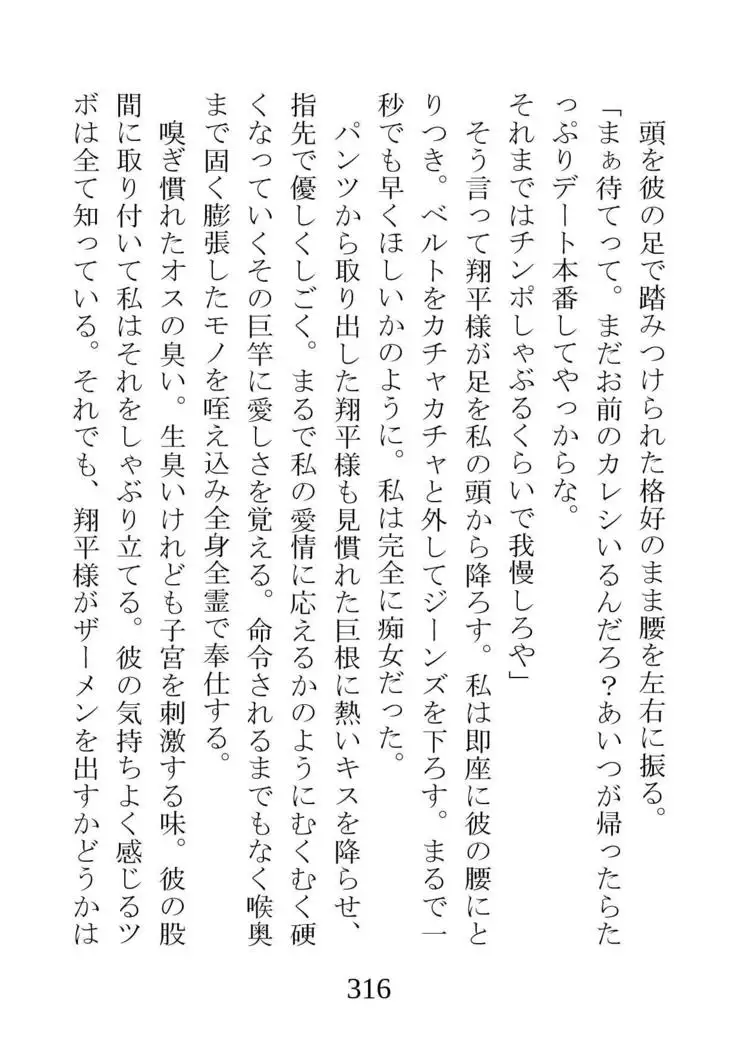 頭を彼の足で踏みつけられた格好のまま腰を左右に振る。
「まぁ待てって。まだお前のカレシいるんだろ？あいつが帰ったらた
っぷりデート本番してやっからな。
それまではチンポしゃぶるくらいで我慢しろや」
そう言って翔平様が足を私の頭から降ろす。私は即座に彼の腰にと
りつき。ベルトをカチャカチャと外してジーンズを下ろす。まるで一
秒でも早くほしいかのように。私は完全に痴女だった。
パンツから取り出した翔平様も見慣れた巨根に熱いキスを降らせ、
指先で優しくしごく。まるで私の愛情に応えるかのようにむくむく硬
くなっていくその巨竿に愛しさを覚える。命令されるまでもなく喉奥
まで固く膨張したモノを咥え込み全身全霊で奉仕する。
嗅ぎ慣れたオスの臭い。生臭いけれども子宮を刺激する味。彼の股
間に取り付いて私はそれをしゃぶり立てる。彼の気持ちよく感じるツ
ボは全て知っている。それでも、翔平様がザーメンを出すかどうかは
316